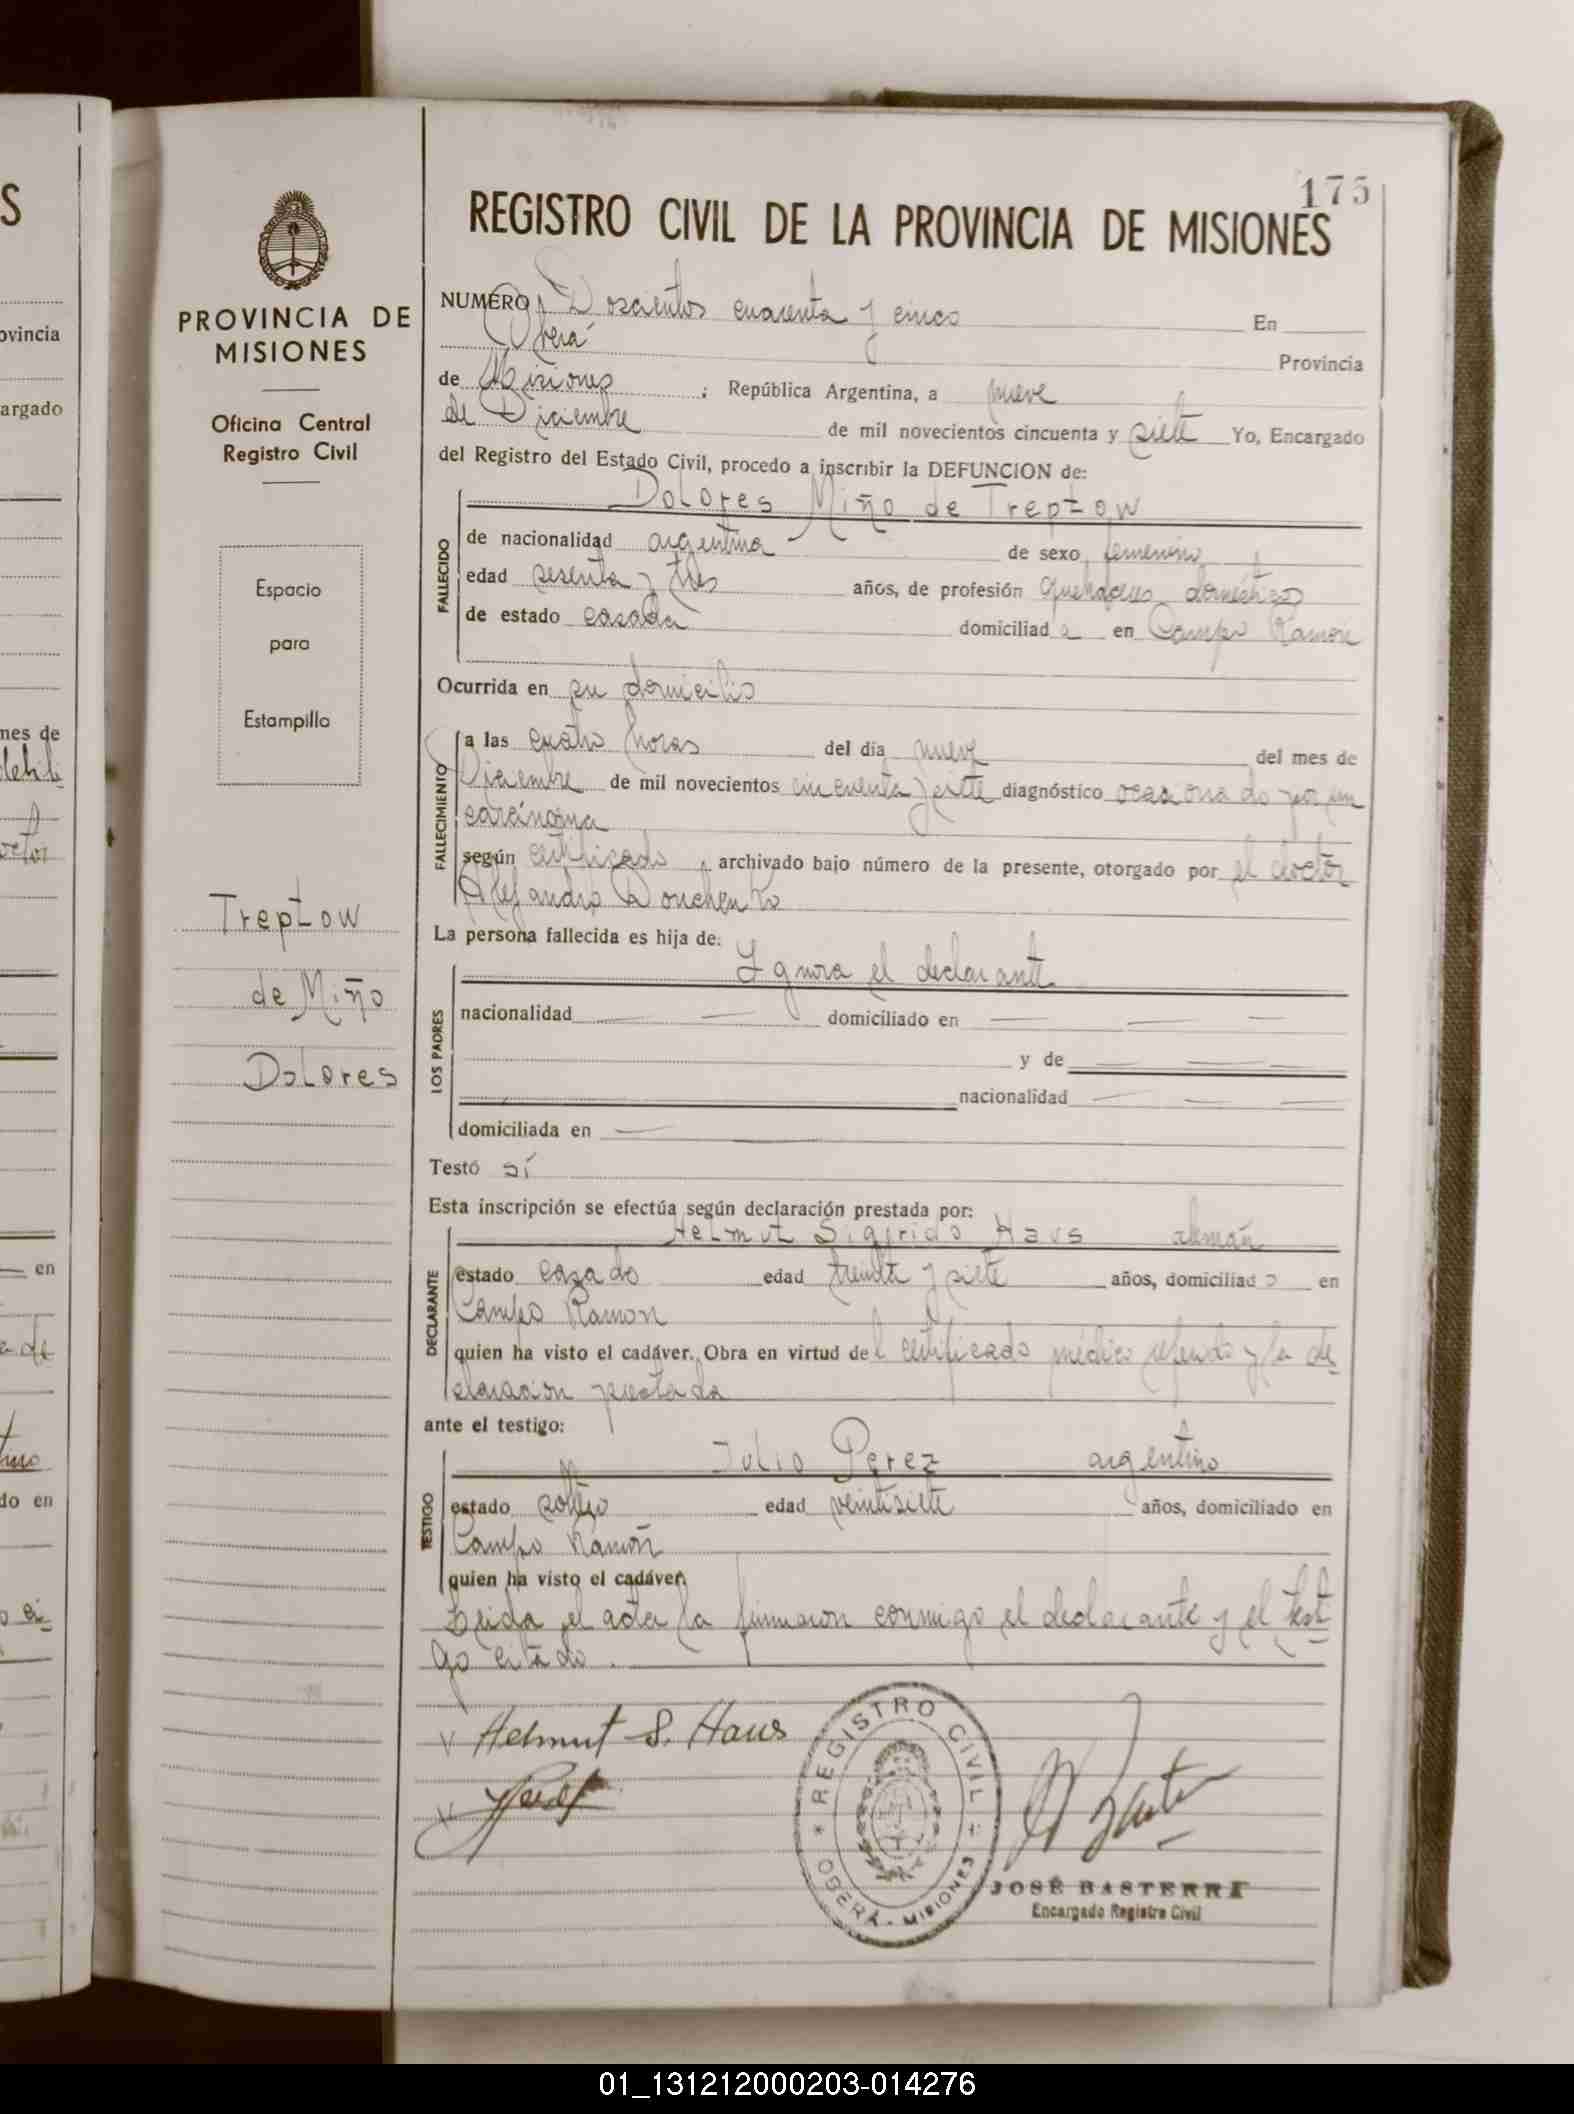 175
REGISTRO CIVIL DE LA PROVINCIA DE MISIONES
PROVINCIA DE
MISIONES
Oficina Central
Registro Civil
Espacio
para
Estampilla
Treptow
de Miño
Dolores
NUMERO Doscientos cuarenta y cinco En
Oberá Provincia
de Misiones ; República Argentina, a nueve
de Diciembre de mil novecientos cincuenta y siete Yo, Encargado
del Registro del Estado Civil, procedo a inscribir la DEFUNCION de:
Dolores Miño de Treptow
FALLECIDO
de nacionalidad argentina de sexo femenino
edad sesenta y tres años, de profesión quehaceres domésticos
de estado casada domiciliad a en Campo Ramón
Ocurrida en su domicilio
FALLECIMIENTO
a las cuatro horas del día nueve del mes de
Diciembre de mil novecientos cincuenta y siete diagnóstico ocasionado por un
carcinoma
según certificado , archivado bajo número de la presente, otorgado por el doctor
Alejandro
La persona fallecida es hija de:
Ignora el declarante
LOS PADRES
nacionalidad — — domiciliado en — — —
y de — — —
nacionalidad — — —
domiciliada en —
Testó sí
Esta inscripción se efectúa según declaración prestada por:
Helmut Sigfrido Haus alemán
DECLARANTE
estado casado edad treinta y siete años, domiciliad o en
Campo Ramon
quien ha visto el cadáver. Obra en virtud del certificado médico referido y la de-
claracion prestada
ante el testigo:
Julio Perez argentino
TESTIGO
estado soltero edad veintisiete años, domiciliado en
Campo Ramón
quien ha visto el cadáver.
Leida el acta la firmaron conmigo el declarante y el testi-
go citado.
Helmut S. Haus
REGISTRO CIVIL
OBERÁ - MISIONES
JOSÉ BASTERRA
Encargado Registro Civil
S
ovincia
argado
mes de
en
do en
01_131212000203-014276